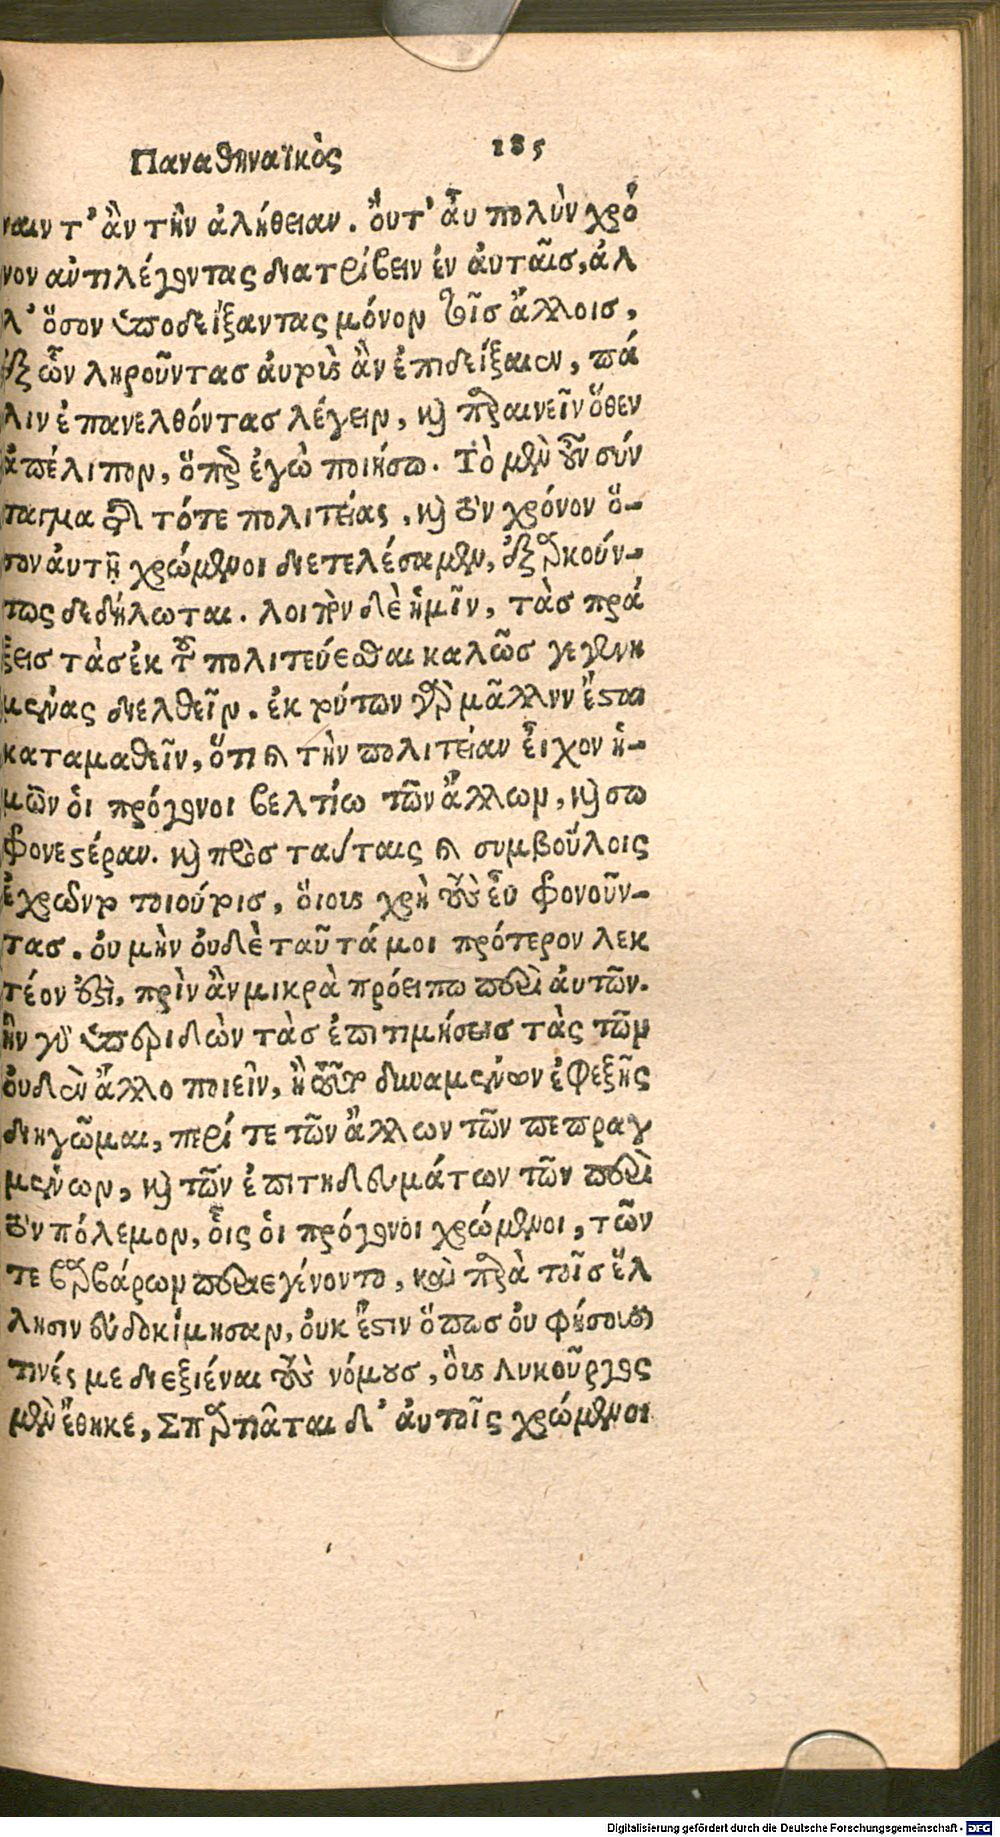 Παναθηναϊκὸς 185
ναιντ’ ἂν τὴν ἀλήθειαν. ὄυτ’ ἀυ πολὺν χρό
νον ἀντιλέγοντας διατρίβειν ἐν ἀυταῖσ, ἀλ
λ’ ὅσον ὑποδείξαντας μόνον τοῖσ ἄλλοισ,
ἐξ ὧν ληροῦντασ ἀυτοὺς ἂν ἐπιδείξαιεν, πά
λιν ἐπανελθόντασ λέγειν, καὶ παραινεῖν ὅθεν
ἀπέλιπον, ὅπερ ἐγὼ ποιήσω. Τὸ μὲν οὖν σύν
ταγμα τῆς τότε πολιτείας, καὶ τὸν χρόνον ὅ-
σον ἀυτῇ χρώμενοι διετελέσαμεν, ἐξαρκούν-
τως δεδήλωται. λοιπὸν δὲ ἡμῖν, τὰσ πρά
ξεισ τὰσ ἐκ τοῦ πολιτεύεσθαι καλῶσ γεγενη
μένας διελθεῖν. ἐκ τούτων γὰρ μᾶλλον ἔσται
καταμαθεῖν, ὅτι καὶ τὴν πολιτείαν εἶχον ἡ-
μῶν ὁι πρόγονοι βελτίω τῶν ἄλλων, καὶ σω
φρονεστέραν. καὶ προσταταις καὶ συμβούλοις
ἐχρῶντο τοιούτοισ, ὅιους χρὴ τοὺς ἐυ φρονοῦν-
τασ. ὀυ μὴν ὀυδὲ ταῦτά μοι πρότερον λεκ
τέον ἐστὶ, πρὶν ἂν μικρὰ πρόειπω περὶ ἀυτῶν.
ἢν γὰρ ὑπεριδὼν τὰσ ἐπιτιμήσεισ τὰς τῶν
ὀυδὲν ἄλλο ποιεῖν, ἢ τοῦτο δυναμένων ἐφεξῆς
διηγῶμαι, περί τε τῶν ἄλλων τῶν πεπραγ
μένων, καὶ τῶν ἐπιτηδευμάτων τῶν περὶ
τὸν πόλεμον, ὁῖς ὁι πρόγονοι χρώμενοι, τῶν
τε βαρβάρων περιεγένοντο, καὶ παρὰ τοῖσ ἕλ
λησιν ἐυδοκίμησαν, ὀυκ ἔστιν ὅπωσ ὀυ φήσουσί
τινές με διεξιέναι τοὺς νόμουσ, ὃυς Λυκοῦργος
μὲν ἔθηκε, Σπαρτιᾶται δ’ ἀυτοῖς χρώμενοι